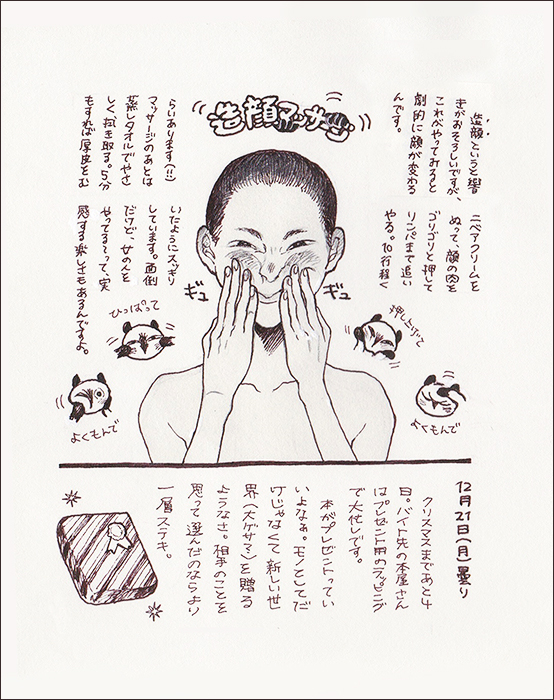 造顔マッサージ
造顔というと響
きがおそろしいですが、
これがやってみると
劇的に顔が変わる
んです。
ニベアクリームを
ぬって、顔の肉を
ゴリゴリと押して
リンパまで追い
やる。10行程く
らいあります(!!)
マッサージのあとは
蒸しタオルでやさ
しく拭き取る。5分
もすれば厚皮をむ
いたようにスッキリ
しています。面倒
だけど、
やってる〜って、実
感する楽しさもあるんですよ。
ギュ
ギュ
押し上げて
よくもんで
ひっぱって
よくもんで
12月21日(月)曇り
クリスマスまであと4
日。バイト先の本屋さん
はプレゼント用のラッピング
で大忙しです。
本がプレゼントってい
いよなぁ。モノとしてだ
けじゃなくて新しいせ
界(大ゲサ?)を贈る
ようなさ。相手のことを
思って選んだのならより
一層ステキ。